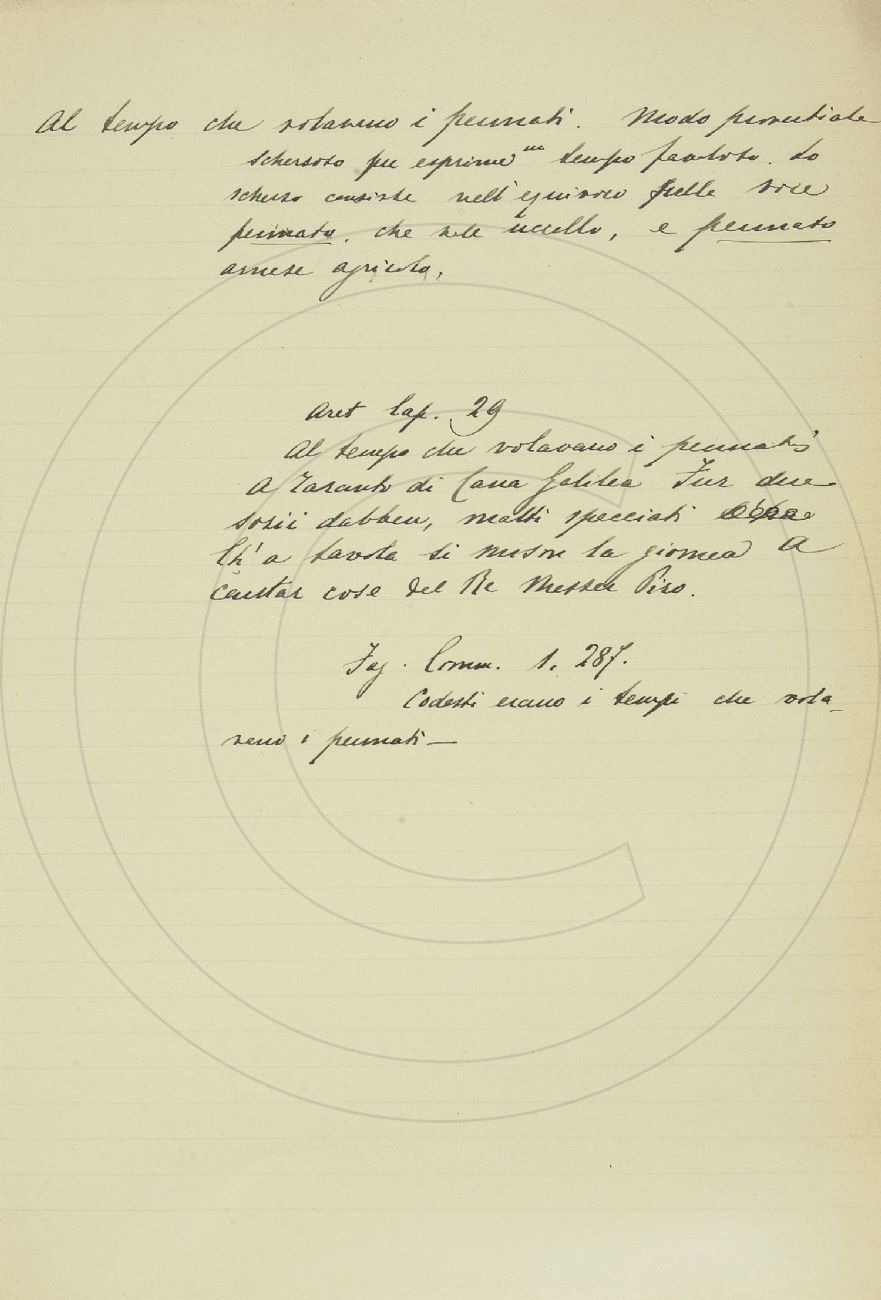 Al tempo che volavano i pennati. Modo proverbiale
scherzoso per esprimere un tempo favoloso. Lo
scherzo consiste nell'equivoco della voce
pennato, che vale uccello, e pennato
arnese agricolo.
Aret Cap. 29
Al tempo che volavano i pennati
A Taranto di Cana Galilea Fur due
sozii dabben, matti specciati
Ch'a tavola si messon la giornea A
cantar cose del Re Messer Piro.
Fag. Comm. 1. 287.
Codesti erano i tempi che vola-
vano i pennati—